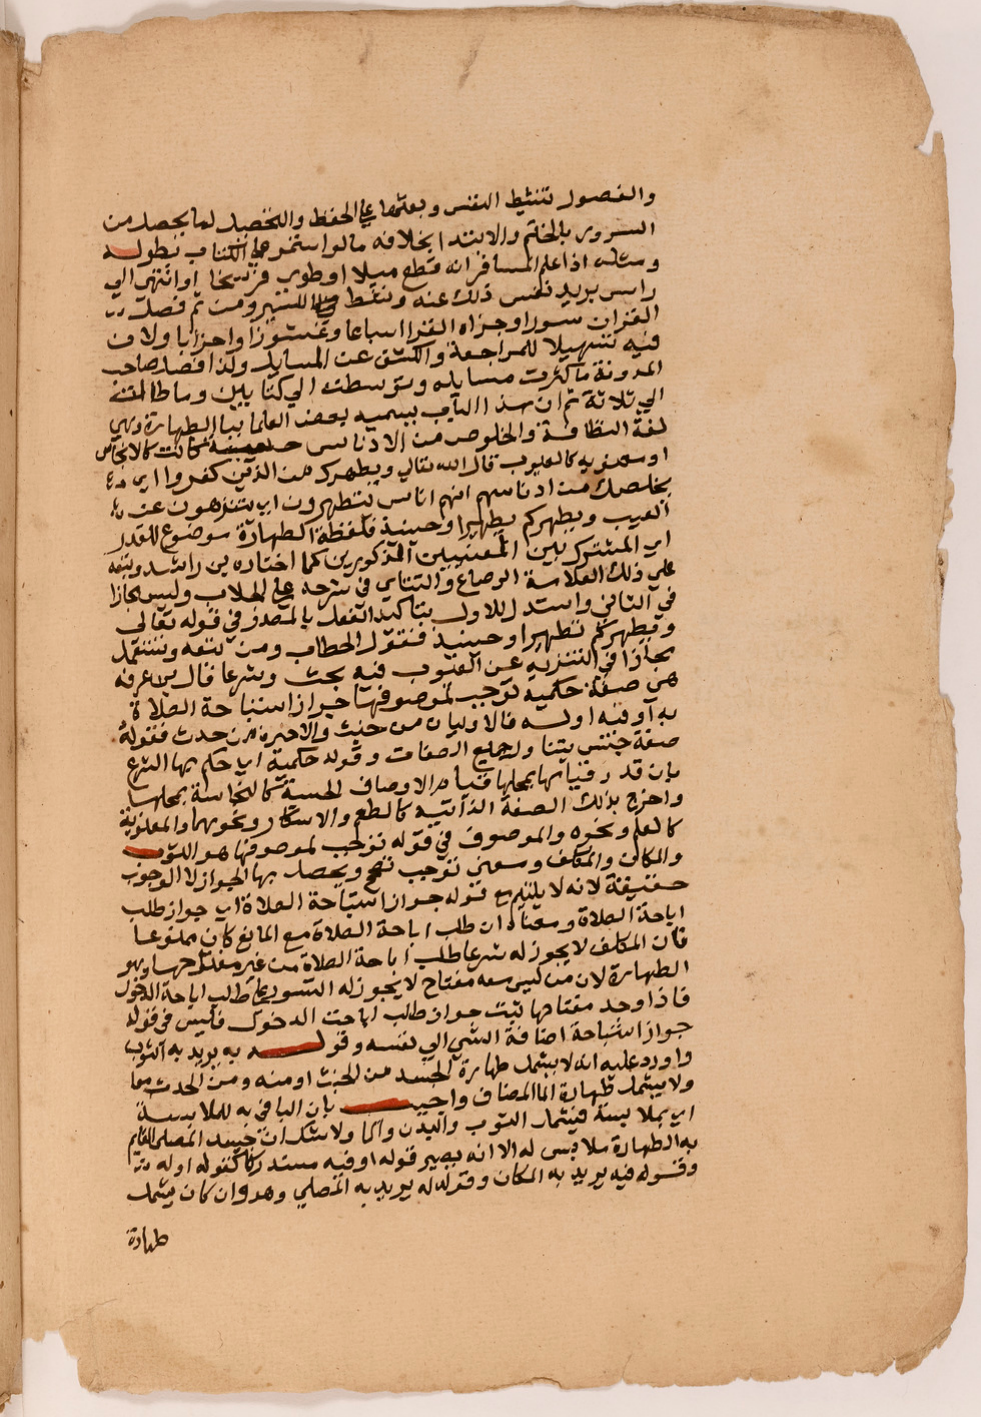 والفصول تنشيط النفس وبعثها علي الحفظ والتحصيل لما يحصل من
السرور بالختم والابتدا بخلافه مالو استمر علي الكتاب بطوله
ومثله اذا علم المسافر انه قطع ميلا او طوي فرسخا او انتهى الي
راس بريد نفس ذلك عنه ونشط للسير ومن ثم فصلت
القران سورا وجزاه القرا اسباعا وعشورا واحزابا ولان
فيه تسهيلا للمراجعة والكشف عن المسايل ولذا فصل صاحب
المدونة ما كثرت مسايله وتوسطت الي كتابين وما طالت منه
الي ثلاثة ثم ان هذا الباب يسميه بعض العلما بباب الطهارة وهي
لغة النظافة والخلوص من الادناس حسية كانت كالانجاس
او معنوية كالعيوب قال الله تعالي ويطهرك من الذين كفروا اي
يخلصك من ادناسهم انهم اناس يتطهرون اي يتنزهون عن
العيب ويطهركم تطهيرا وحينيذ فلفظة الطهارة موضوع للقدر
اي المشترك بين المعنيين المذكورين كما اختاره بن راشد وتبعه
علي ذلك العلامة الرصاع والتتاي في شرحه علي الجلاب وليس مجازا
في الثاني واستدل للاول بتاكيد الفعل بالمصدر في قوله تعالى
ويطهركم تطهيرا وحينيذ فقول الحطاب ومن تبعه وتستعمل
مجازا في التنزيه عن العيوب فيه بحث وشرعا قال بن عرفة
هي صفة حكمية توجب لموصوفها جواز استباحة الصلاة
به او فيه او له فالاوليان من خبث والاخيرة من حدث فقوله
صفة جنس يتناول جميع الصفات وقوله حكمية اي حكم بها الشرع
بان قدر قيامها بمحلها قيام الاوصاف الحسية كالنجاسة بمحلها
واخرج بذلك الصفة الذاتية كالطعم والاسكار ونحوهما والمعنوية
كالعلم ونحوه والموصوف في قوله توجب لموصوفها هو الثوب
والمكان والمكلف ومعني توجب ويحصل بها الجواز لا الوجوب
حقيقة لانه لا يلتيم مع قوله جواز استباحة الصلاة اي جواز طلب
اباحة الصلاة ومعناه ان طلب اباحة الصلاة مع المانع كان ممنوعا
فان المكلف لا يجوز له شرعا طلب اباحة الصلاة من غير مفتاحها وهو
الطهارة لان من ليس معه مفتاح لا يجوز له التسور علي طلب اباحة الدخول
فاذا وجد مفتاحها ثبت جواز طلب اباحت الدخول فليس في قوله
جواز استباحة اضافة الشي الي نفسه وقوله به يريد به الثوب
واورد عليه انه لا يشمل طهارة الجسد من الخبث او منه ومن الحدث معا
ولا يشمل طهارة الما المضاف واجيب بان البا في به للملابسة
اي بملابسة فيشمل الثوب والبدن والما ولا شك ان جسد المصلي القايم
به الطهارة ملابس له الا انه يصير قوله او فيه مستدركا كقوله او له
وقوله فيه يريد به المكان وقوله له يريد به المصلي وهو وان كان يشمل
طهارة